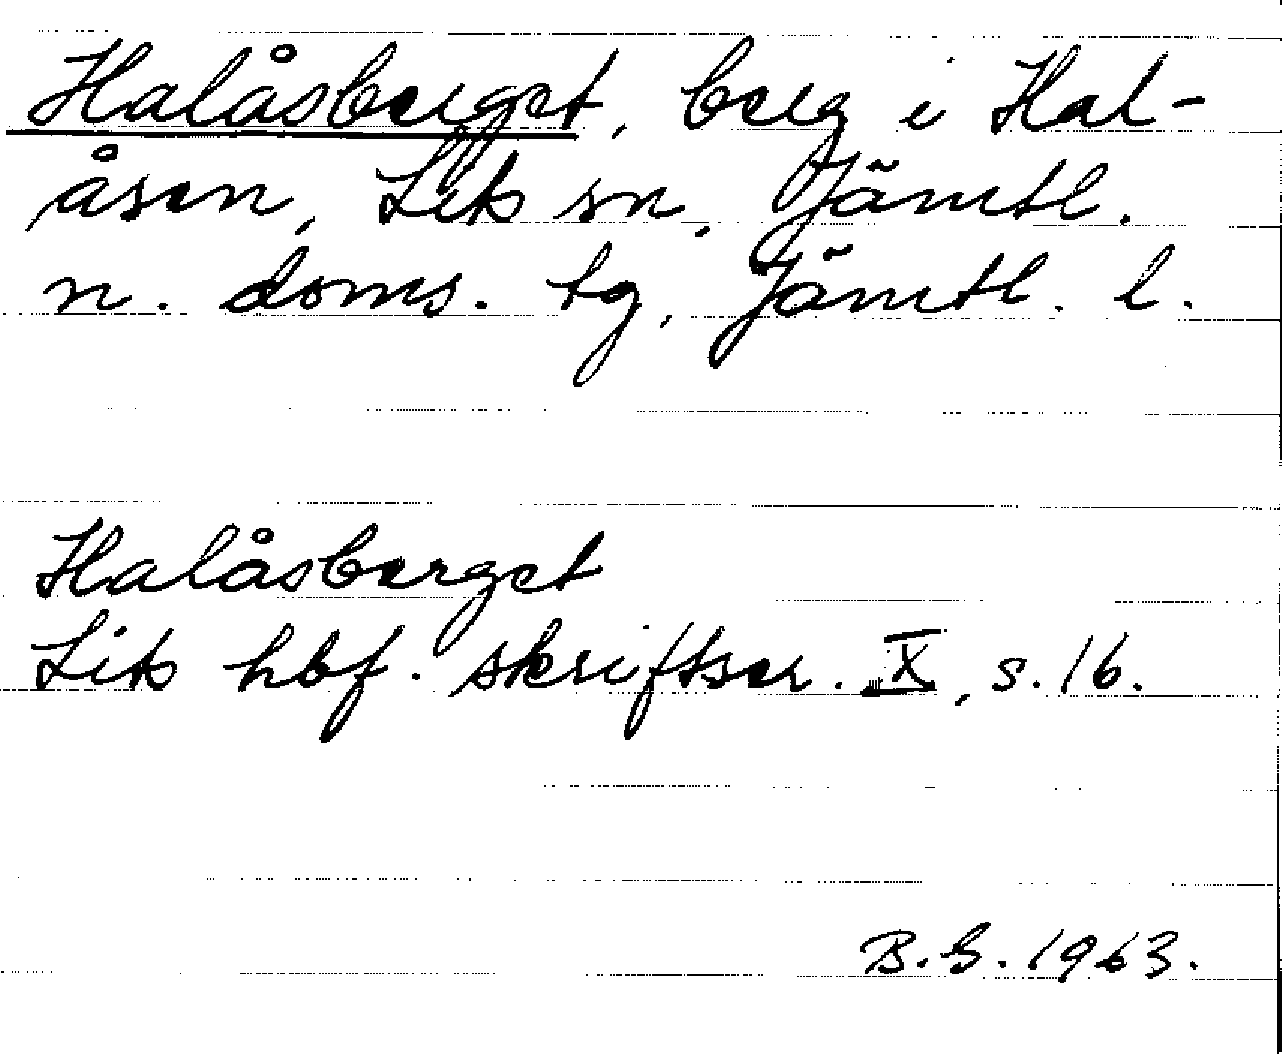 Halåsberget, berg i Hal-
åsen, Lits sn, Jämtl.
n. doms. tg, Jämtl. l.
Halåsberget
Lits hbf. skriftser. X, s. 16.
B.G. 1963.